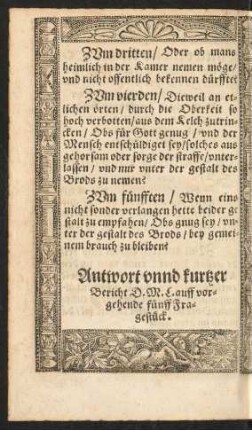 ZVm dritten / Oder ob mans
heimlich in der Kamer nemen möge /
vnd nicht offentlich bekennen dürffte?
ZVm vierden / Dieweil an et-
lichen örten / durch die Oberkeit so
hoch verbotten / aus dem Kelch zutrin-
cken / Obs für Gott genug / vnd der
Mensch entschüldiget sey / solches aus
gehorsam oder sorge der straffe / vnter-
lassen / vnd nur vnter der gestalt des
Brods zu nemen?
ZVm fünfften / Wenn eins
nicht sonder verlangen hette beider ge
stalt zu empfahen / Obs gnug sey / vn-
ter der gestalt des Brods / bey gemei-
nem brauch zu bleiben?
Antwort vnnd kurtzer
Bericht D. M. L. auff vor-
gehende fünff Fra-
gestück.